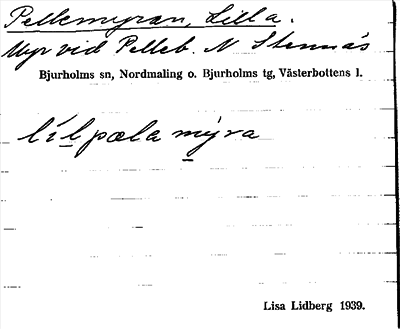 Pellemyran, Lilla.
Myr vid Pelleb. N Stennäs
Bjurholms sn, Nordmaling o. Bjurholms tg, Västerbottens l.
lílpæla mýra
Lisa Lidberg 1939.